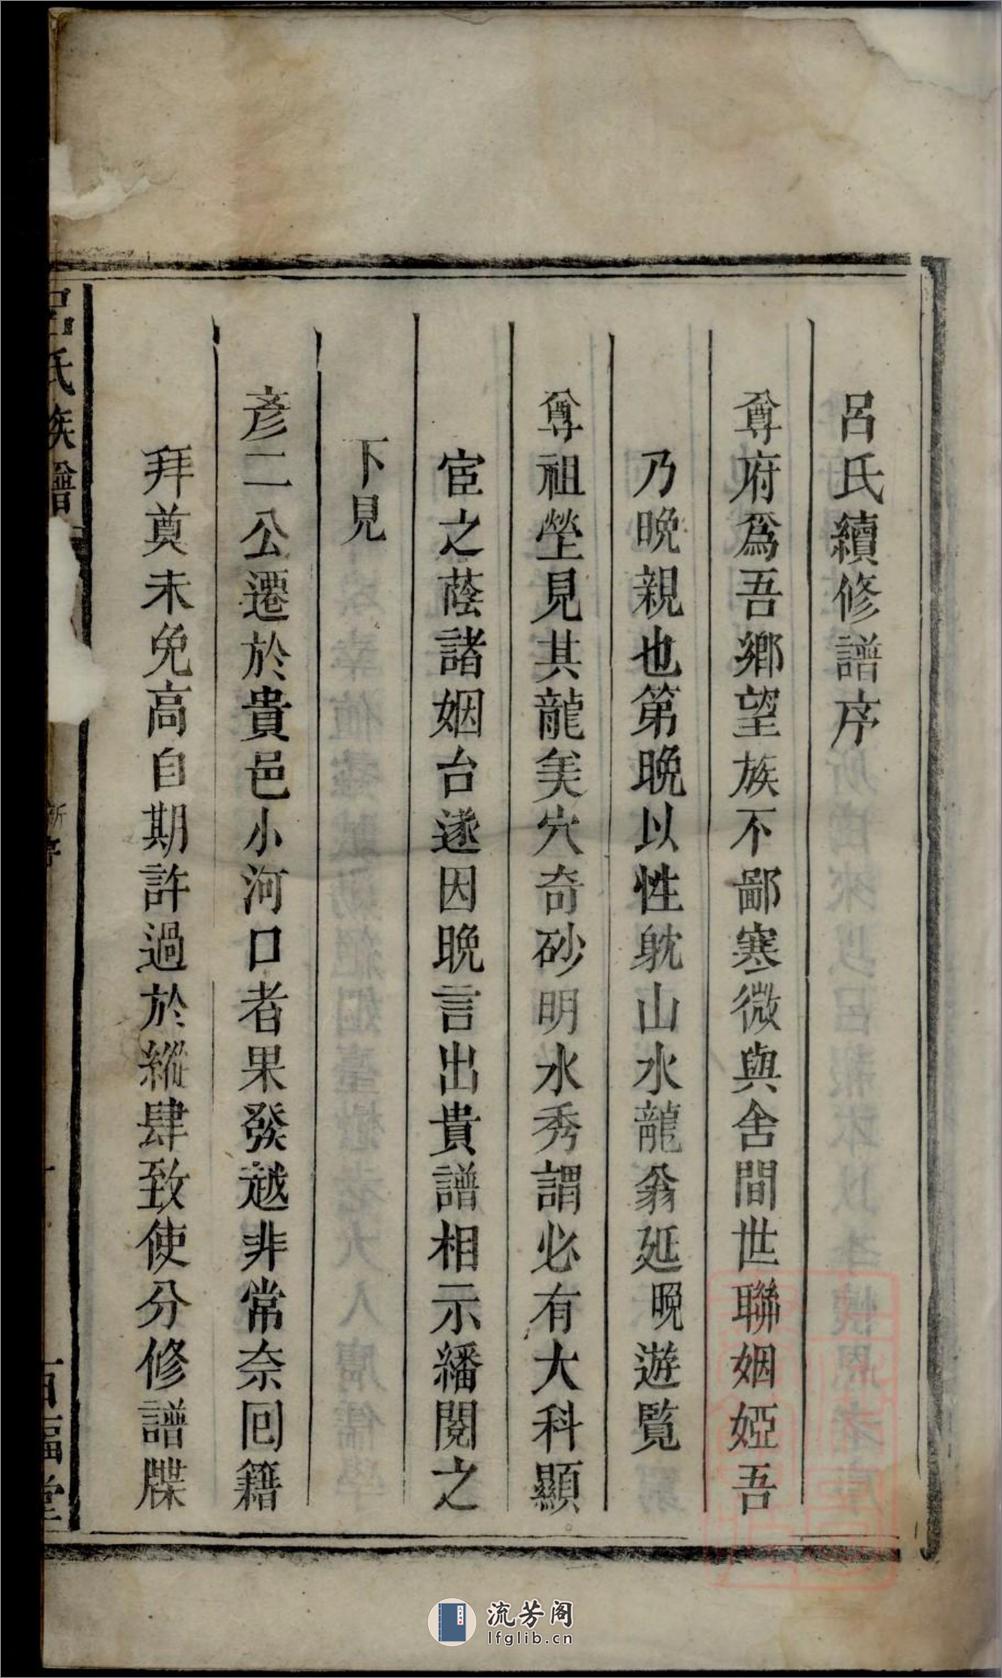 呂氏續修譜序
尊府爲吾鄉望族不鄙寒微與舍間世聯姻婭吾
乃晚親也第晚以性躭山水龍翁延晚遊覧
尊祖塋見其龍美穴奇砂明水秀謂必有大科顯
宦之蔭諸姻台遂因晚言出貴譜相示繙閱之
下見
彥二公遷於貴邑小河口者果發越非常奈回籍
拜奠未免高自期許過於縱肆致使分修譜牒
呂氏族譜
新序
百福堂
流芳阁
lfglib.cn